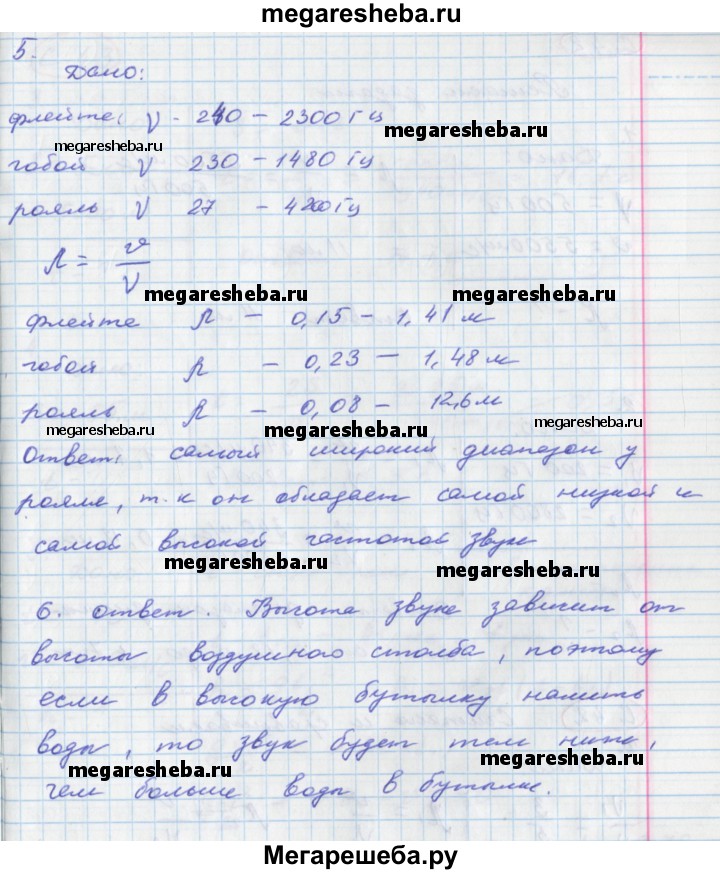 megaresheba.ru
5.
Дано:
флейте: ν - 240 - 2300 Гц
megaresheba.ru
megaresheba.ru
гобой ν 230 - 1480 Гц
рояль ν 27 - 4200 Гц
λ = v/ν
megaresheba.ru
megaresheba.ru
флейте λ - 0,15 - 1,41 м
гобой λ - 0,23 - 1,48 м
рояль λ - 0,08 - 12,6 м
megaresheba.ru
megaresheba.ru
megaresheba.ru
Ответ: самый широкий диапазон у
рояля, т.к он обладает самой низкой и
самой высокой частотой звука
megaresheba.ru
megaresheba.ru
6. ответ. Высота звука зависит от
высоты воздушного столба, поэтому
megaresheba.ru
megaresheba.ru
если в высокую бутылку налить
воды, то звук будет тем ниже,
megaresheba.ru
megaresheba.ru
чем больше воды в бутылке.
Мегарешеба.ру